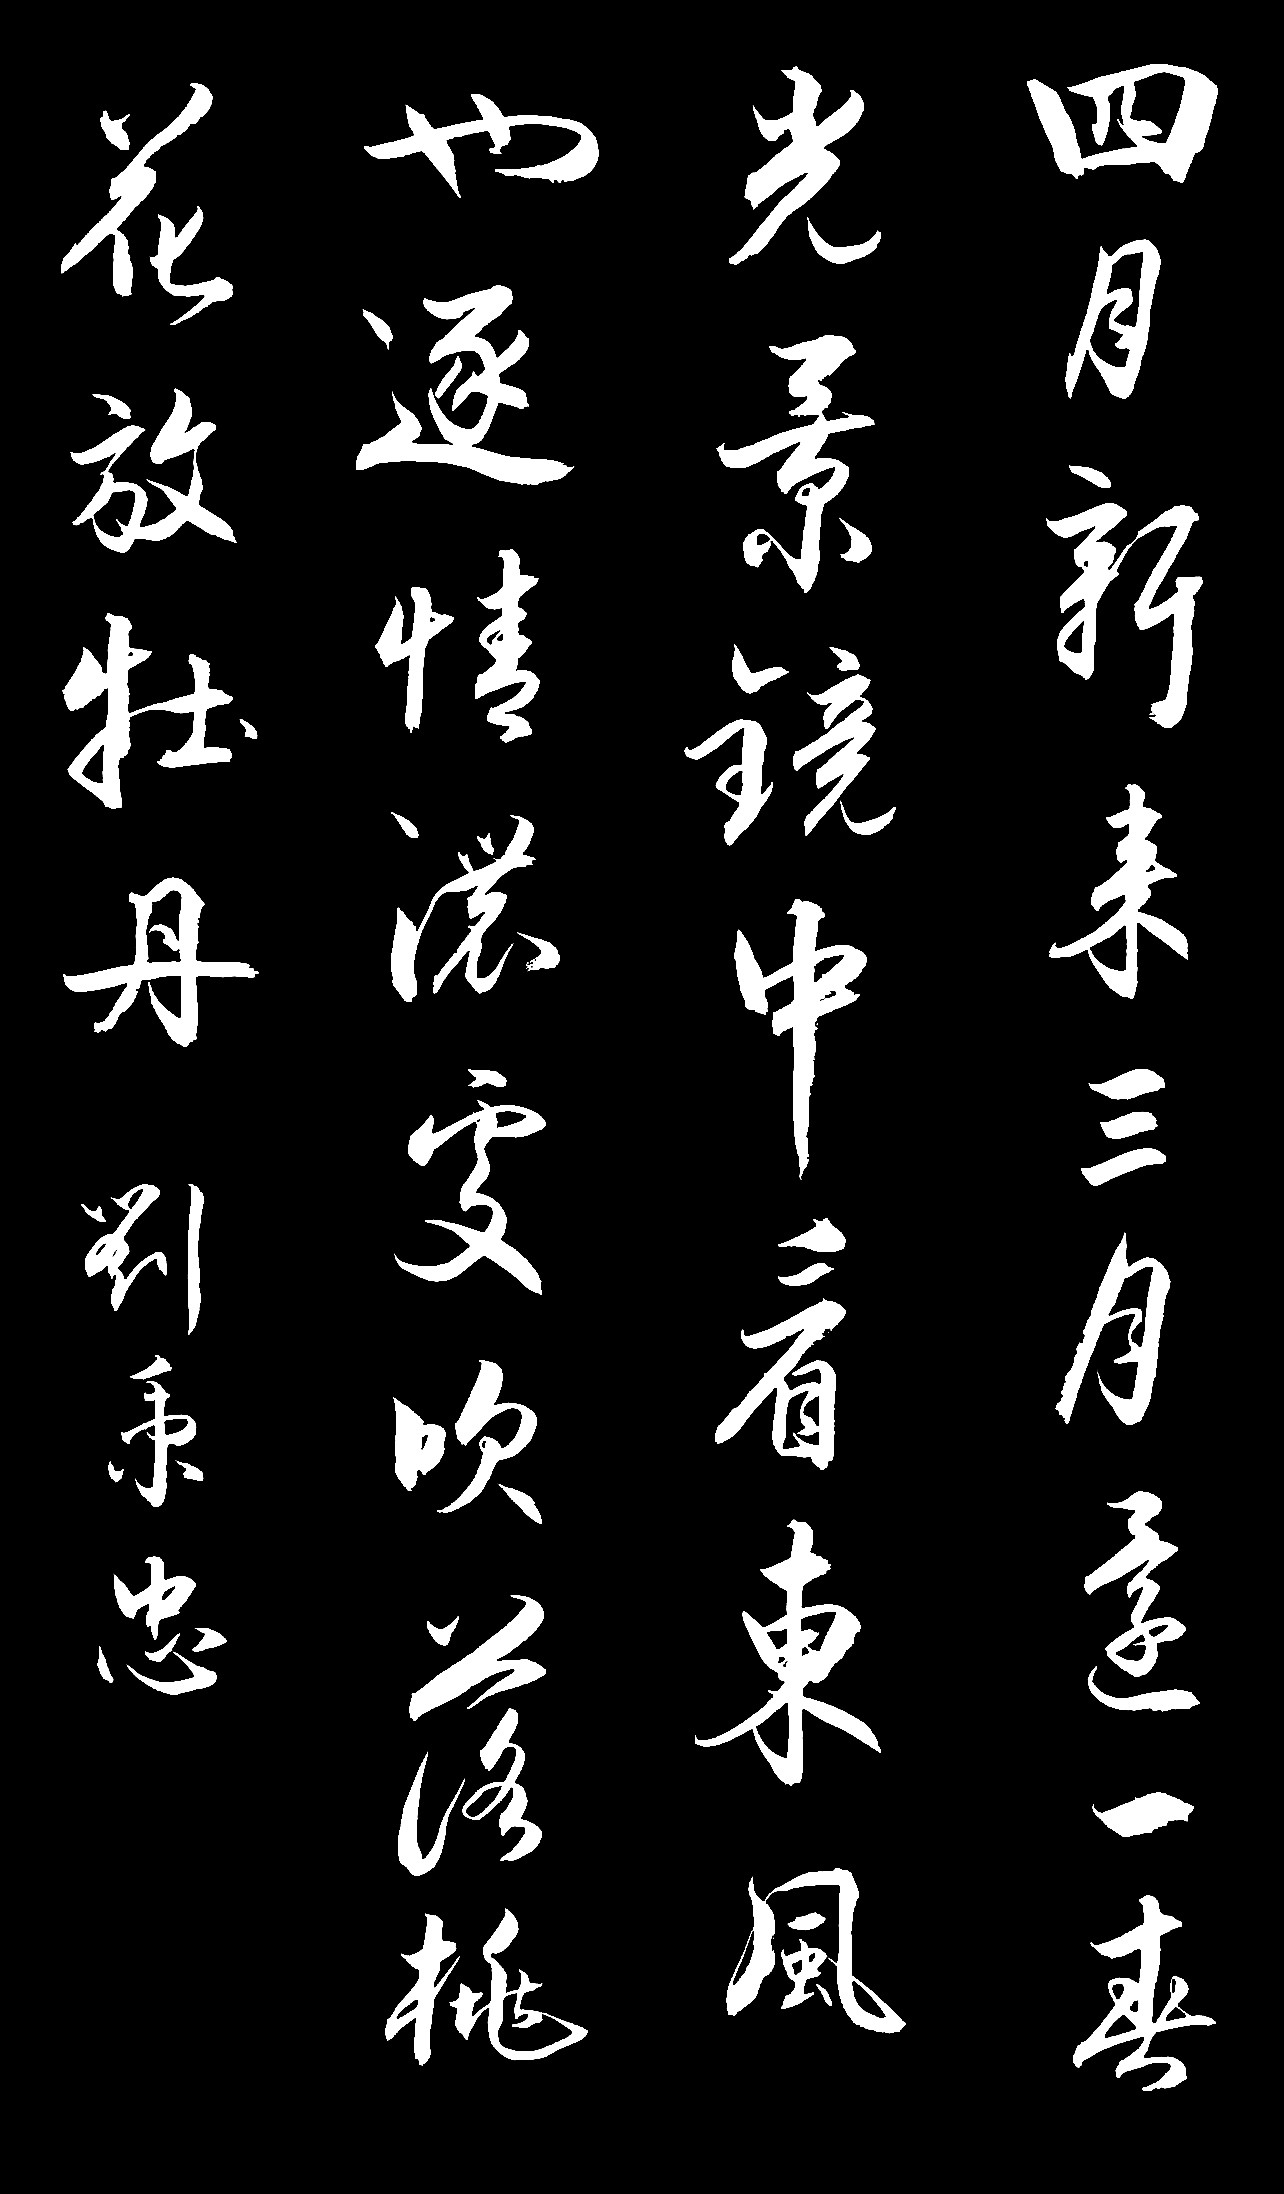 四月新来三月還一春
光景鏡中看東風
也逐情濃處吹落桃
花放牡丹 劉秉忠